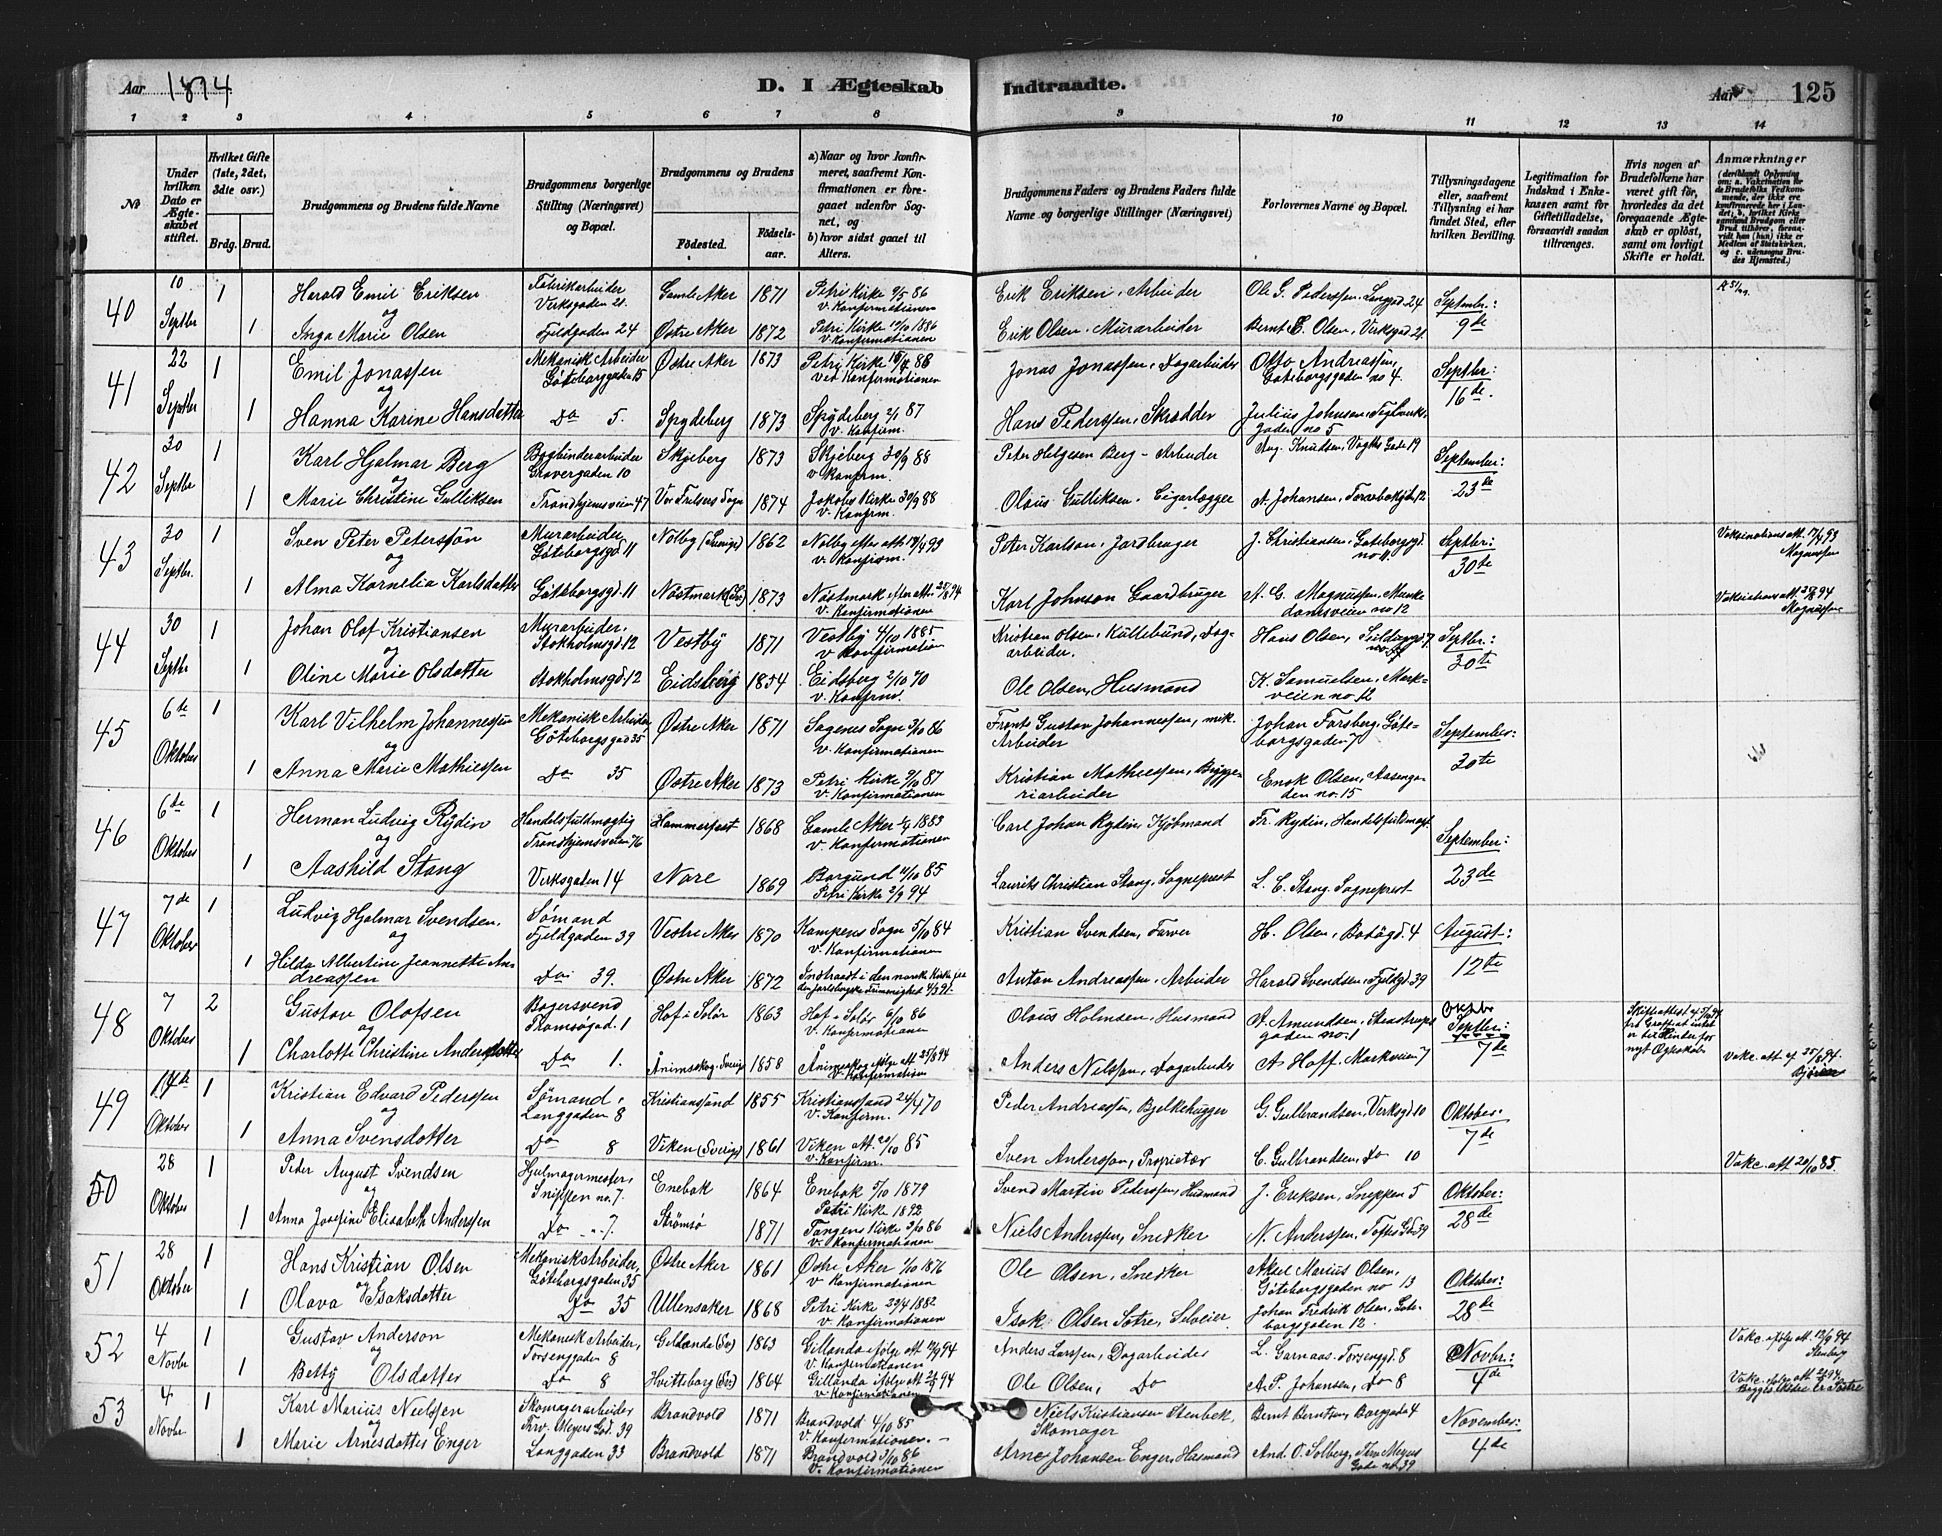 Aar 1894 D. I Ægteskab Indtraadte. Aar 125
1 2 3 4 5 6 7 8 9 10 11 12 13 14
No
Under hvilken Dato er Ægteskabet stiftet.
Hvilket Gifte (1ste, 2det, 3die osv.)
Brdg. Brud.
Brudgommens og Brudens fulde Navne
Brudgommens borgerlige Stilling (Næringsvei) og Bopæl.
Brudgommens og Brudens
Födested. Födsels-aar.
a) Naar og hvor konfirmeret, saafremt Konfirmationen er foregaaet udenfor Sognet, og
b) hvor sidst gaaet til Alters.
Brudgommens Faders og Brudens Faders fulde Navne og borgerlige Stillinger (Næringsvei)
Forlovernes Navne og Bopæl.
Tillysningsdagene eller, saafremt Tillysning ei har fundet Sted, efter hvilken Bevilling.
Legitimation for Indskud i Enkekassen samt for Giftetilladelse, forsaavidt saadan tiltrænges.
Hvis nogen af Brudefolkene har været gift för, hvorledes da det foregaaende Ægteskab er oplöst, samt om lovligt Skifte er holdt.
Anmærkninger
40 10 Septbr 1 Harald Emil Eriksen Fabrikarbeider Virksgaden 21. Gamle Aker 1871 Petri Kirke 9/5 86 v. Konfirmationen Erik Eriksen, Arbeider Ole G. Pederssen, Langgd. 24 September: 9de
og
1 Inga Marie Olsen Fjeldgaden 24 Østre Aker 1872 Petri Kirke 10/10 1886 v. Konfirmationen Erik Olsen, Murarbeider Bernt E. Olsen, Virksgad. 21
41 22 Septbr 1 Emil Jonassen Mekanisk Arbeider Göteborgsgaden 15 Østre Aker 1873 Petri Kirke 88 ved Konfirmationen Jonas Jonassen, Dagarbeider Otto Andreassen, Göteborgsgaden no 4. Septbr: 16de.
og
1 Hanna Karine Hansdatter Do 5. Spydeberg 1873 Spydeberg 87 v. Konfirm. Hans Pederssen, Skrædder Julius Johnsen, gaden no 5
42 30 Septbr 1 Karl Hjalmar Berg Bogbinderarbeider Gravergaden 10 Skjeberg 1873 Skjeberg 30/9 88 v Konfirm. Peter Helgesen Berg - Arbeider Aug. Knudsen, Vogts Gade 19 September: 23de
og
1 Marie Christine Gulliksen Trondhjemsveien 47 Vor Frelsers Sogn 1874 Jakobs Kirke 30/9 88 v. Konfirm. Olaus Gulliksen, Cigarlægger A. Johansen,
43 30 Septbr. 1 Sven Peter Petersson Murarbeider, Göteborgsgd. 11 Nolby (Sverige) 1862 Nolby efter att. 93 v. Konfirm. Peter Karlson, Jordbruger J. Christiansen, Göteborgsgd. no 11. Septbr: 30te Vaksinations att. 93 Magnussen
og
1 Alma Kornelia Karlsdatter Göteborgsgd. 11 Nöstmark (Sv) 1873 Nöstmark efter Att. 94 v. Konfirmationen Karl Johnson Gaardbruger A. C. Magnussen, Munkedamsveien no 12 Vaksinations att. 94 Magnussen
44 30 Septbr 1 Johan Olaf Kristiansen Murarbeider, Stokholmsgd. 12 Vestby 1871 Vestby 4/10 1885 v Konfirmation Kristian Olsen, Kullebund, Dagarbeider. Hans Olsen, Septbr.: 30te
og
1 Oline Marie Olsdatter Stokholmsgd. 12 Eidsberg 1854 Eidsberg 2/10 70 v. Konfirm. Ole Olsen, Husmand K. Samuelsen, Markveien no 12
45 6te Oktober 1 Karl Vilhelm Johannessen Mekanisk Arbeider, Göteborgsgad 35 Østre Aker 1871 Sagenes Sogn 3/10 86 v. Konfirmationen Frants Gustav Johannessen, mek. Arbeider Johan Forsberg, Göteborgsgaden 7 September: 30te
og
1 Anna Marie Mathiessen Do 35 Østre Aker 1873 Petri Kirke 9/10 87 v. Konfirmationen Kristian Mathiessen, Bryggeriarbeider Enok Olsen, Aasengaden no. 15
46 6te Oktober 1 Herman Ludvig Rydin Handelsfuldmægtig Trondhjemsveien 76 Hammerfest 1868 Gamle Aker 1883 v. Konfirmationen Carl Johan Rydin, Kjøbmand Fr. Rydin, Handelsfuldmægt. September: 23de
og
1 Aashild Stang Virksgaden 14 Nore 1869 Borgund 4/10 85 Petri Kirke 2/9 94 Laurits Christian Stang, Sogneprest L. C. Stang, Sogneprest
47 7de Oktober 1 Ludvig Hjalmar Svendsen. Sømand Fjeldgaden 39 Vestre Aker 1870 Kampens Sogn 5/10 84 v. Konfirmationen Kristian Svendsen, Farver H. Olsen, Bodögd. 4 August: 12te
og
1 Hilda Albertine Jeannette Andreassen Do 39. Østre Aker 1872 Indtraadt i den norske Kirke fra den Jarlsbergske Frimenighet 4/3 91. Anton Andreassen, Arbeider Harald Svendsen, Fjeldgd. 39
48 7 Oktober 2 Gustav Olofsen Bagersvend Tromsøgad. 1 Hof i Solör 1863 Hof i Solör 6/10 86 v. Konfirmationen Olaus Holmsen, Husmand A. Amundsen, Steenstrupsgaden no. 1 Oktbr Septbr: 7de Skifteattest
og
1 Charlotte Christine Andersdotter Do 1. Ånimskog, Sverige 1858 Ånimskog ifølge att 25/8 94 v. Konfirmation Anders Nilssen, Dagarbeider A. Hoff, Markveien 7 Vakc. att af 25/8 94.
49 14de Oktober 1 Kristian Edvard Pederssen Sømand, Langgaden 8 Kristianssand 1855 Kristianssand 24/4 70 v. Konfirm. Peder Andreassen, Bjelkehugger G. Gulbrandsen, Virksgd 10 Oktober: 7de
og
1 Anna Svensdotter Do 8 Viken (Sverige) 1861 Viken att. 20/10 85 v. Konfirm. Sven Andersson, Proprietær C. Gulbrandsen, Do 10 Vakc. att 20/10 85.
50 28 Oktober 1 Peder August Svendsen Hjulmagermester, Snippen no. 7. Enebak 1864 Enebak 5/10 1879 Petri Kirke 1892 Svend Martin Pederssen, Husmand J. Eriksen, Sneppen 5 Oktober: 28de
og
1 Anna Josefine Elisabeth Anderssen Do - 7. Strömsö 1871 Tangens Kirke 3/10 86 v. Konfirmationen Niels Anderssen, Snedker N. Anderssen, Toftes Gd. 39
51 28 Oktober 1 Hans Kristian Olsen Mekanisk Arbeider, Göteborgsgaden 35 Østre Aker 1861 Østre Aker 1/10 1876 v Konfirmationen Ole Olsen, Snedker Aksel Marius Olsen, Göteborgsgaden no 13 Oktober: 28de
og
1 Olava Isaksdatter Do 35 Ullensaker 1868 Petri Kirke 1882 v. Konfirmationen Isak Olsen Sotre, Selveier Johan Fredrik Olsen, Göteborgsgaden 12.
52 4 Novbr 1 Gustav Anderson Mekanisk Arbeider, Torsenggaden 8 Gillanda (Sv) 1863 Gillanda ifølge att 12/9 94 v. Konfirmationen Anders Larssen, Dagarbeider L. Garnaas, Torsenggd. 8 Novbr.: 4de Vakc. ifølge att. 12/9 94 Stenberg
og
1 Betty Olsdatter Do 8 Hvitteborg (Sv) 1864 Gillanda ifølge att 94 v. Konfirmationen Ole Olsen, Do A. P. Johansen, Do 8 Vakc. ifølge att
53 4 Novbr. 1 Karl Marius Nielsen Skomagerarbeider Thv. Meyers Gd. 39 Brandvold 1871 Brandvold 4/10 85 v. Konfirmationen. Niels Kristiansen Stenbek, Skomager Bernt Berntsen, Borggad 4 November: 4de
og
1 Marie Arnesdatter Enger Langgaden 33 Brandvold 1871 Brandvold 3/10 86 v. Konfirmationen Arne Johansen Enger, Husmand And. O. Solberg, Thv Meyers Gade no. 39